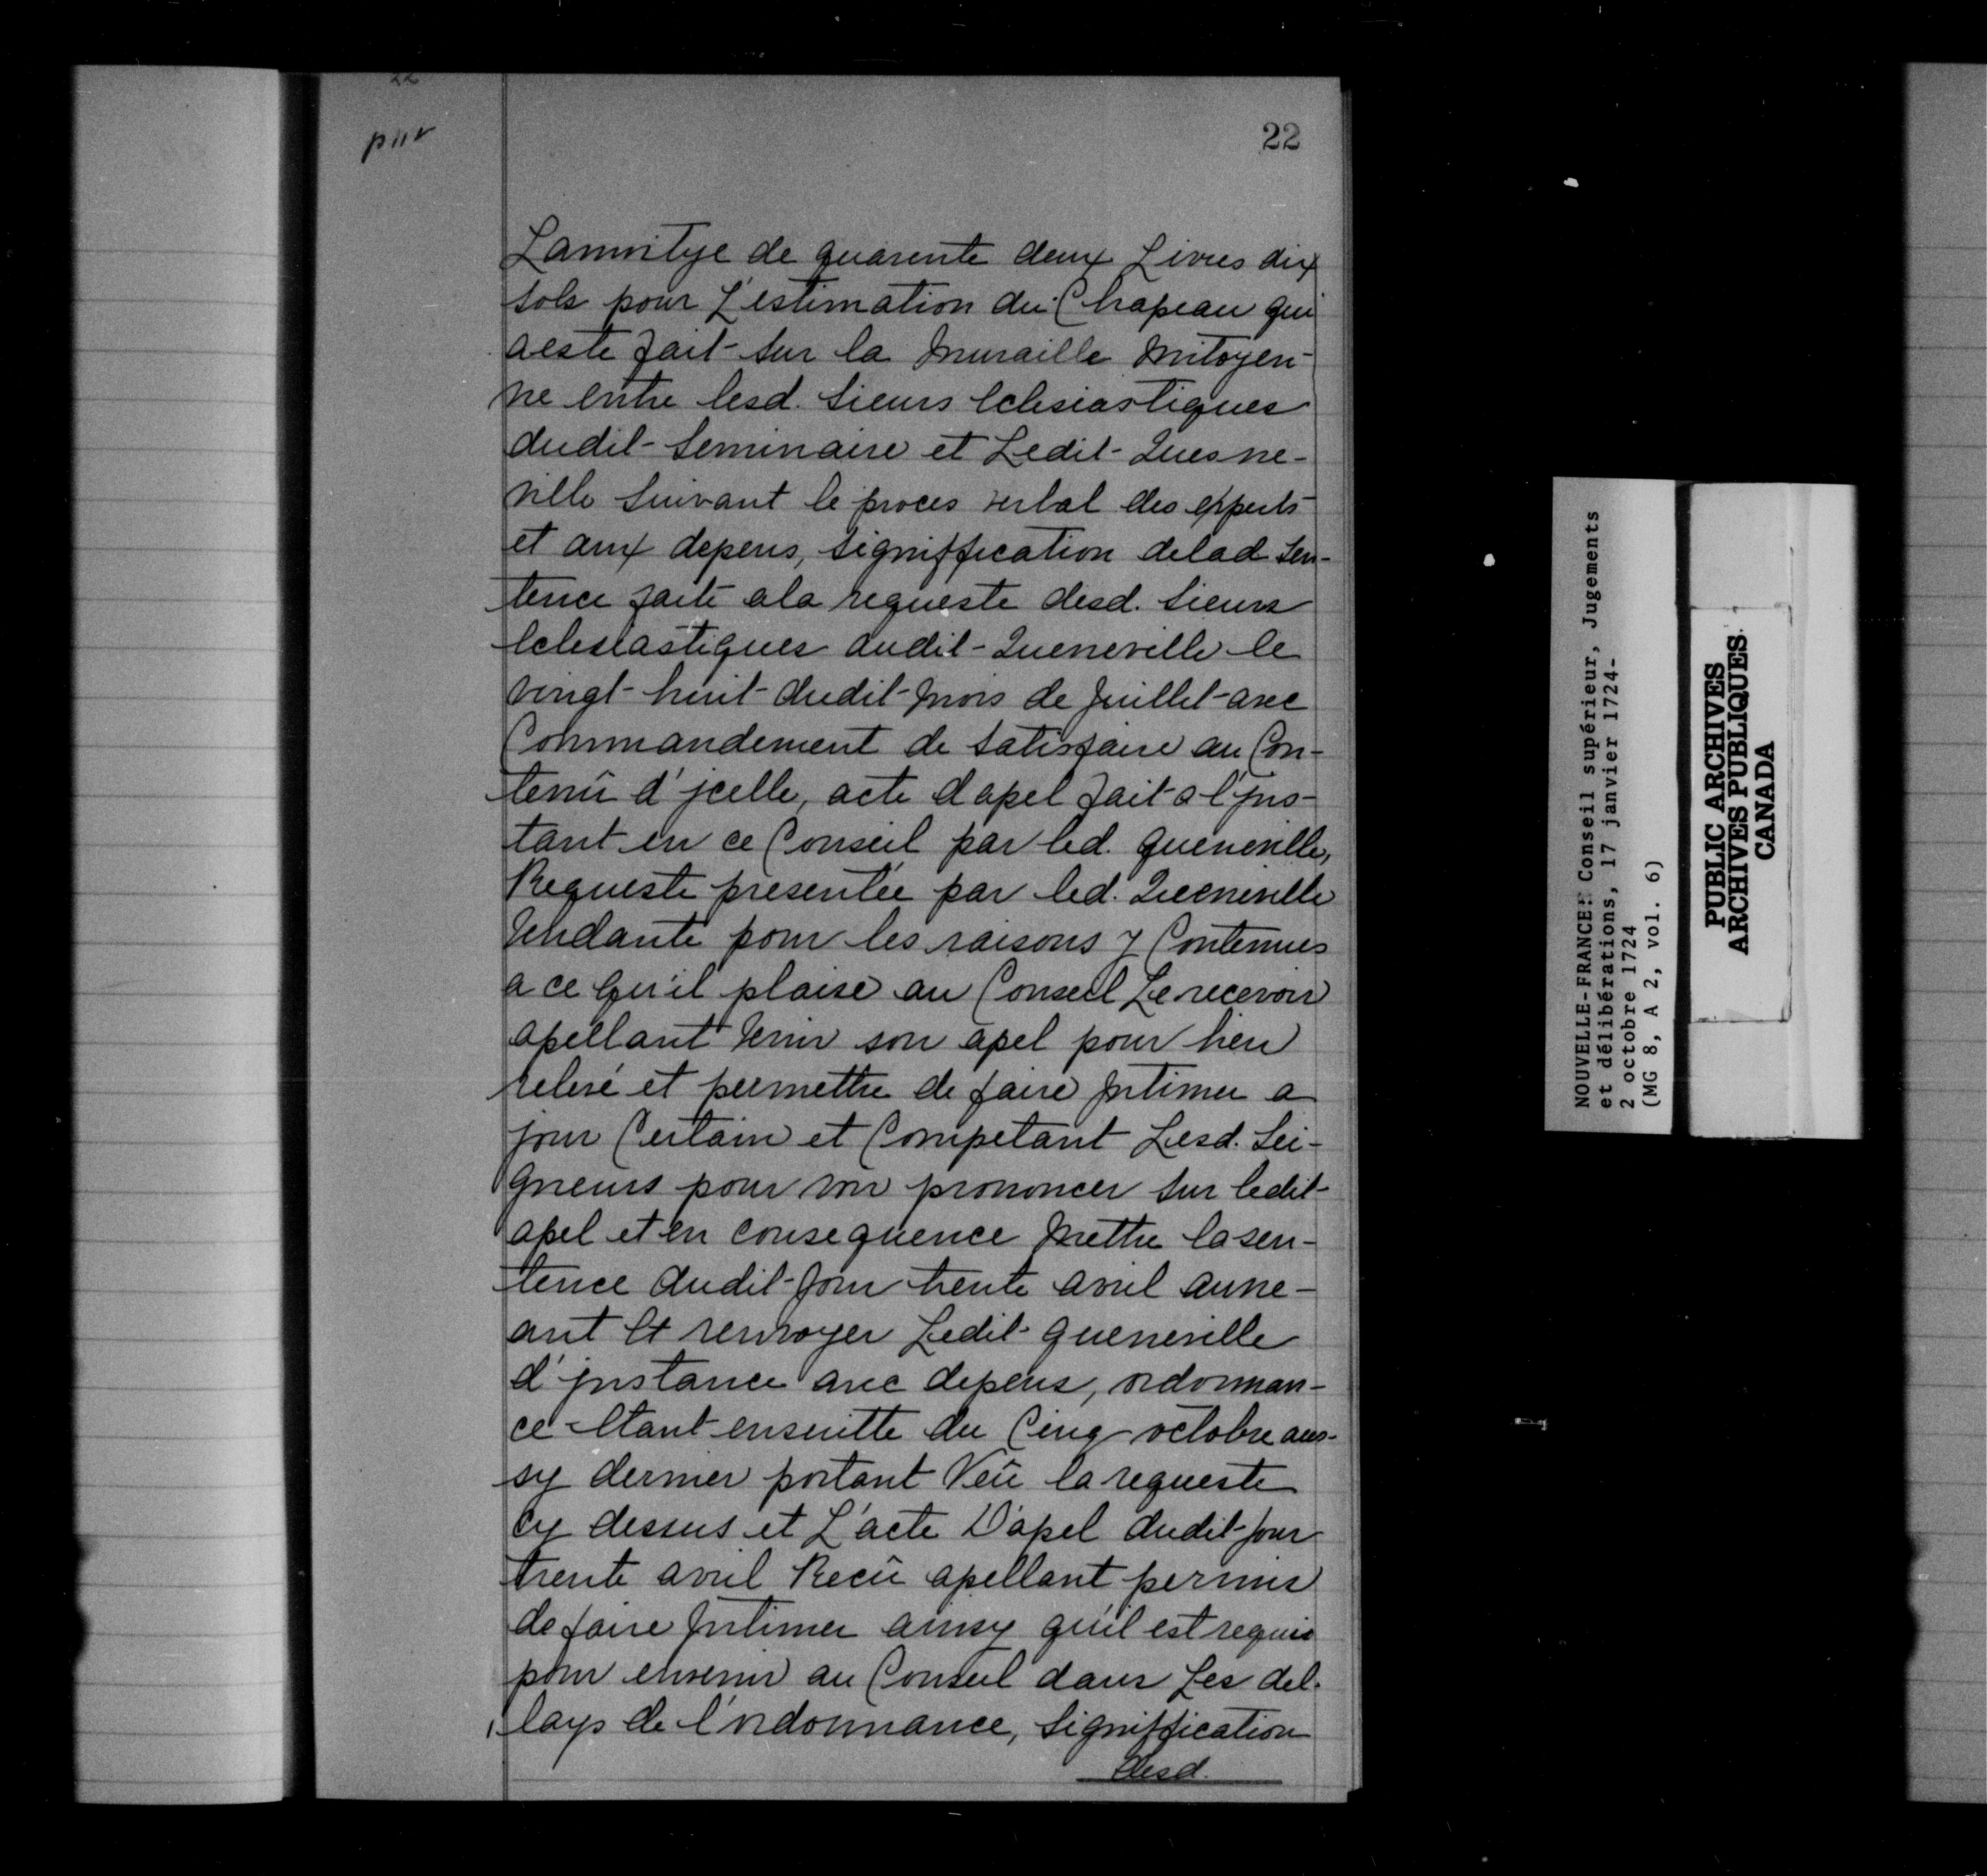 22
22
Lamoitye de quarente deux Livres dix
sols pour L'estimation du Chapeau qui
aeste fait sur la Muraille Mitoyen-
ne entre lesd. Sieurs Eclesiastiques
dudit Seminaire et Ledit Quesne-
ville Suivant le proces verbal des experts
et aux depens, signiffication delad Sen-
tence faite ala requeste desd. Sieurs
Eclesiastiques audit Queneville le
vingt huit dudit Mois de Juillet avec
Commandement de Satisfaire au Con-
tenû d'jcelle, acte dapel fait a l'jns-
tant en ce Conseil par led. queneville,
Requeste presentée par led. Queneville
Tendante pour les raisons y Contenues
a ce qu'il plaise au Conseil Le recevoir
apellant Tenir son apel pour bien
relevé et permettre de faire Jntimer a
jour Certain et Competant Lesd. Sei-
gneurs pour voir prononcer sur ledit
apel et en consequence Mettre lasen-
tence dudit Jour trente avril aune-
ant Et renvoyer Ledit queneville
d'jnstance avec depens, ordonnan-
ce Etant ensuitte du Cinq octobre aus-
sy dernier portant Veû la requeste
cy dessus et L'acte D'apel dudit Jour
trente avril Recû apellant permis
de faire Jntimer ainsy qu'il est requis
pour envenir au Conseil dans Les del-
lays de l'ordonnance, Signiffication
desd.
NOUVELLE-FRANCE: Conseil supérieur, Jugements
et délibérations, 17 janvier 1724-
2 octobre 1724
(MG 8, A 2, vol. 6)
PUBLIC ARCHIVES
ARCHIVES PUBLIQUES
CANADA